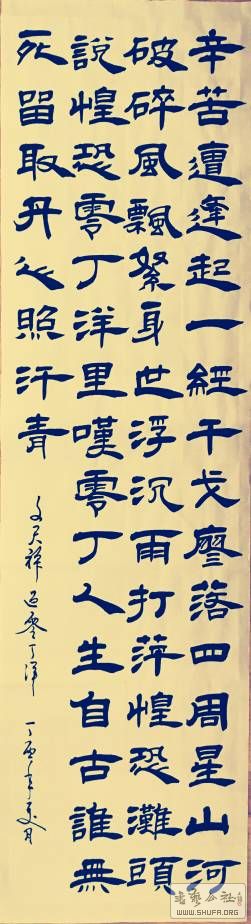 辛苦遭逢起一經干戈廖落四周星山河
破碎風飄絮身世浮沉雨打萍惶恐灘頭
說惶恐零丁洋里嘆零丁人生自古誰無
死留取丹心照汗青
文天祥 過零丁洋 丁酉年夏月
WWW.SHUFR.COM